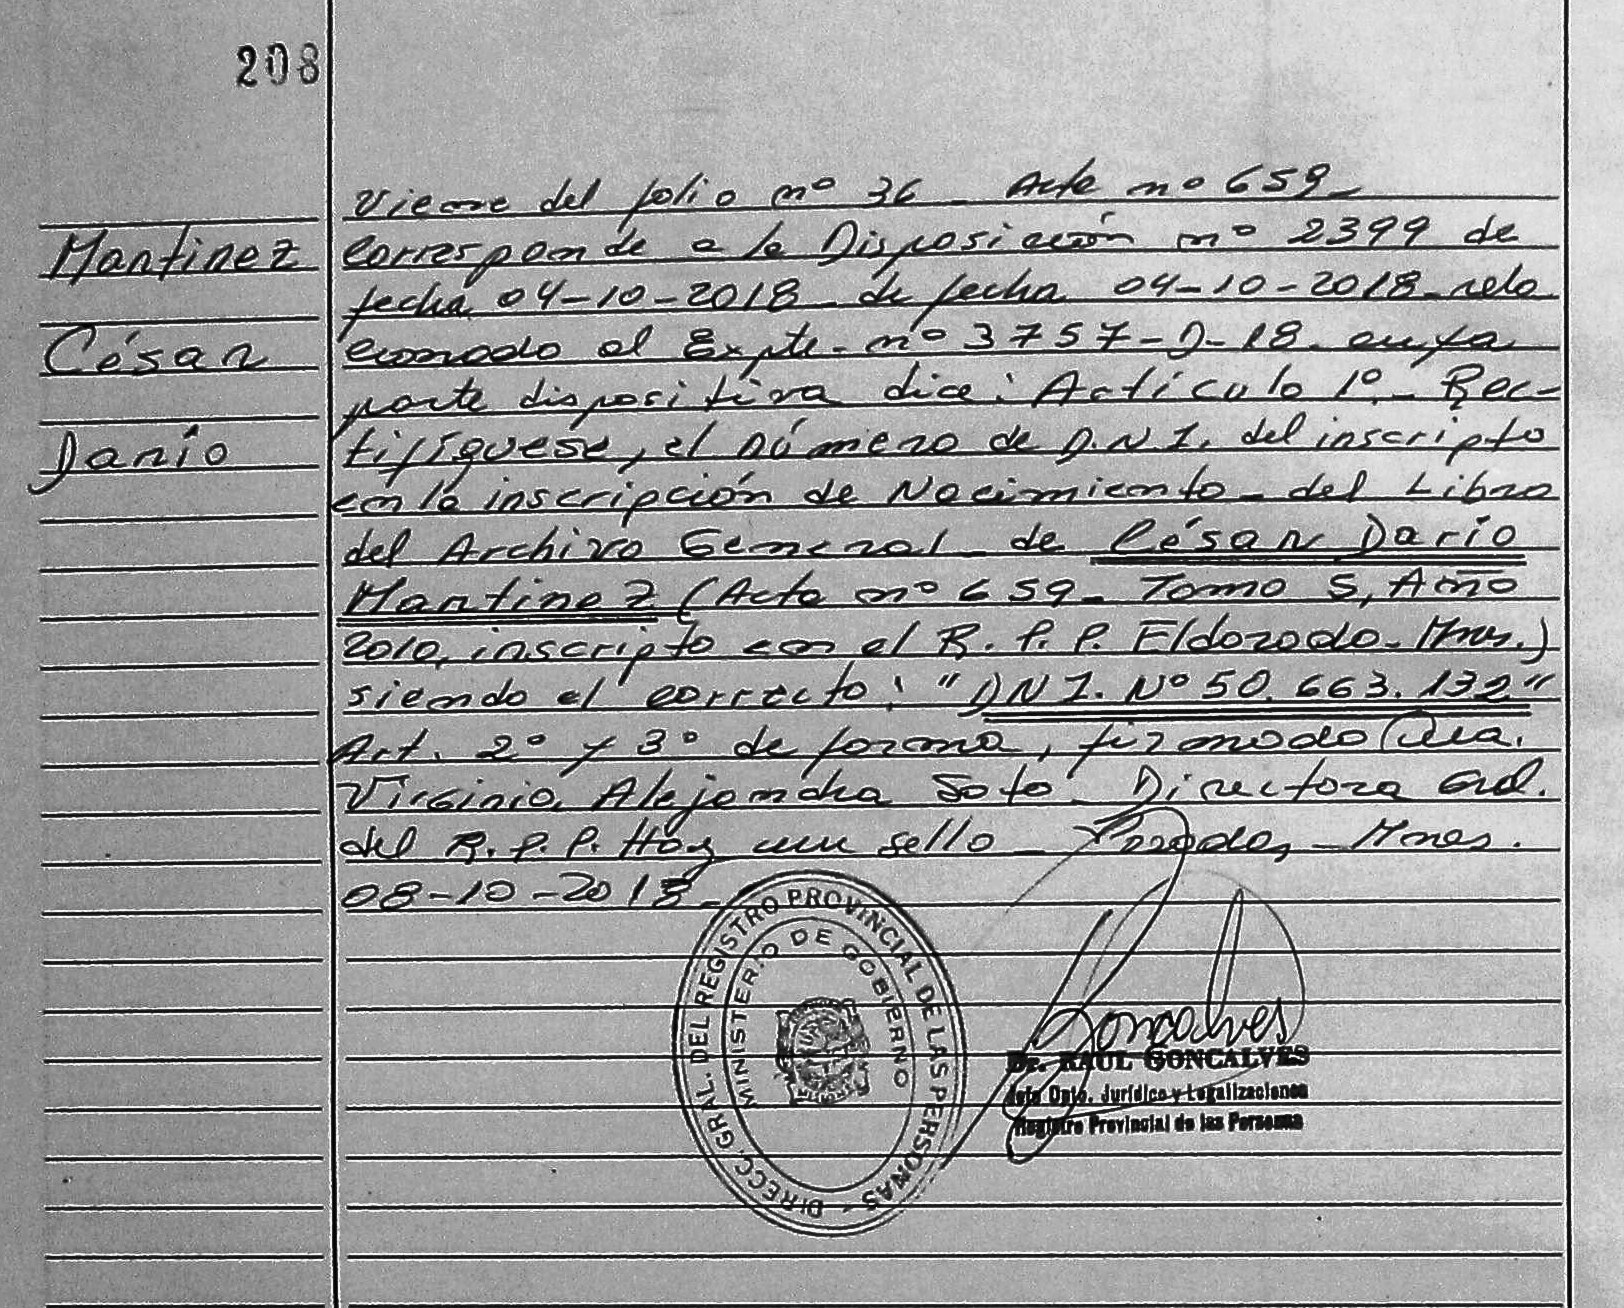 208
Martinez
César
Darío
Viene del folio nº 36 - Acta nº 659 -
Corresponde a la Disposición nº 2399 de
fecha 04-10-2018 - de fecha 04-10-2018 - rela
cionado al Expte. nº 3757-D-18 - cuya
parte dispositiva dice: Artículo 1º.- Rec-
tifíquese, el número de D.N.I. del inscripto
en la inscripción de Nacimiento - del Libro
del Archivo General - de César Darío
Martinez (Acta nº 659 - Tomo 5, Año
2010, inscripto en el R.P.P. Eldorado - Mnes.)
siendo el correcto: "DNI. Nº 50.663.132"
Art. 2º y 3º de forma, firmado
Virginia Alejandra Soto - Directora Gral.
del R.P.P. Hay un sello - Posadas - Mnes.
08-10-2018 -
DIRECC. GRAL. DEL REGISTRO PROVINCIAL DE LAS PERSONAS -
MINISTERIO DE GOBIERNO
Goncalves
Dr. RAUL GONCALVES
Jefe Dpto. Jurídico y Legalizaciones
Registro Provincial de las Personas